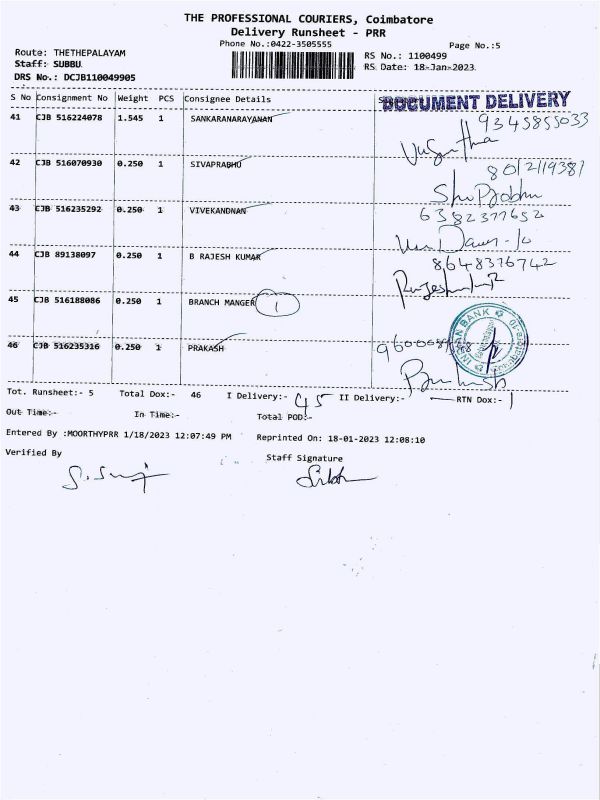 THE PROFESSIONAL COURIERS, Coimbatore
Delivery Runsheet - PRR
Phone No.:0422-3505555
Page No.:5
Route: THETHEPALAYAM
Staff: SUBBU
DRS No.: DCJB110049905
RS No.: 1100499
RS Date: 18-Jan-2023
S No Consignment No Weight PCS Consignee Details
DOCUMENT DELIVERY
41 CJB 516224078 1.545 1 SANKARANARAYANAN 9345855033
42 CJB 516070930 0.250 1 SIVAPRABHU 8012119381
43 CJB 516235292 0.250 1 VIVEKANDNAN 6382377652
44 CJB 89138097 0.250 1 B RAJESH KUMAR 8648376742
45 CJB 516188086 0.250 1 BRANCH MANGER 1
INDIAN BANK
46 CJB 516235316 0.250 1 PRAKASH
Tot. Runsheet:- 5 Total Dox:- 46 I Delivery:- 45 II Delivery:- RTN Dox:- 1
Out Time:- In Time:- Total POD:-
Entered By :MOORTHYPRR 1/18/2023 12:07:49 PM Reprinted On: 18-01-2023 12:08:10
Verified By Staff Signature